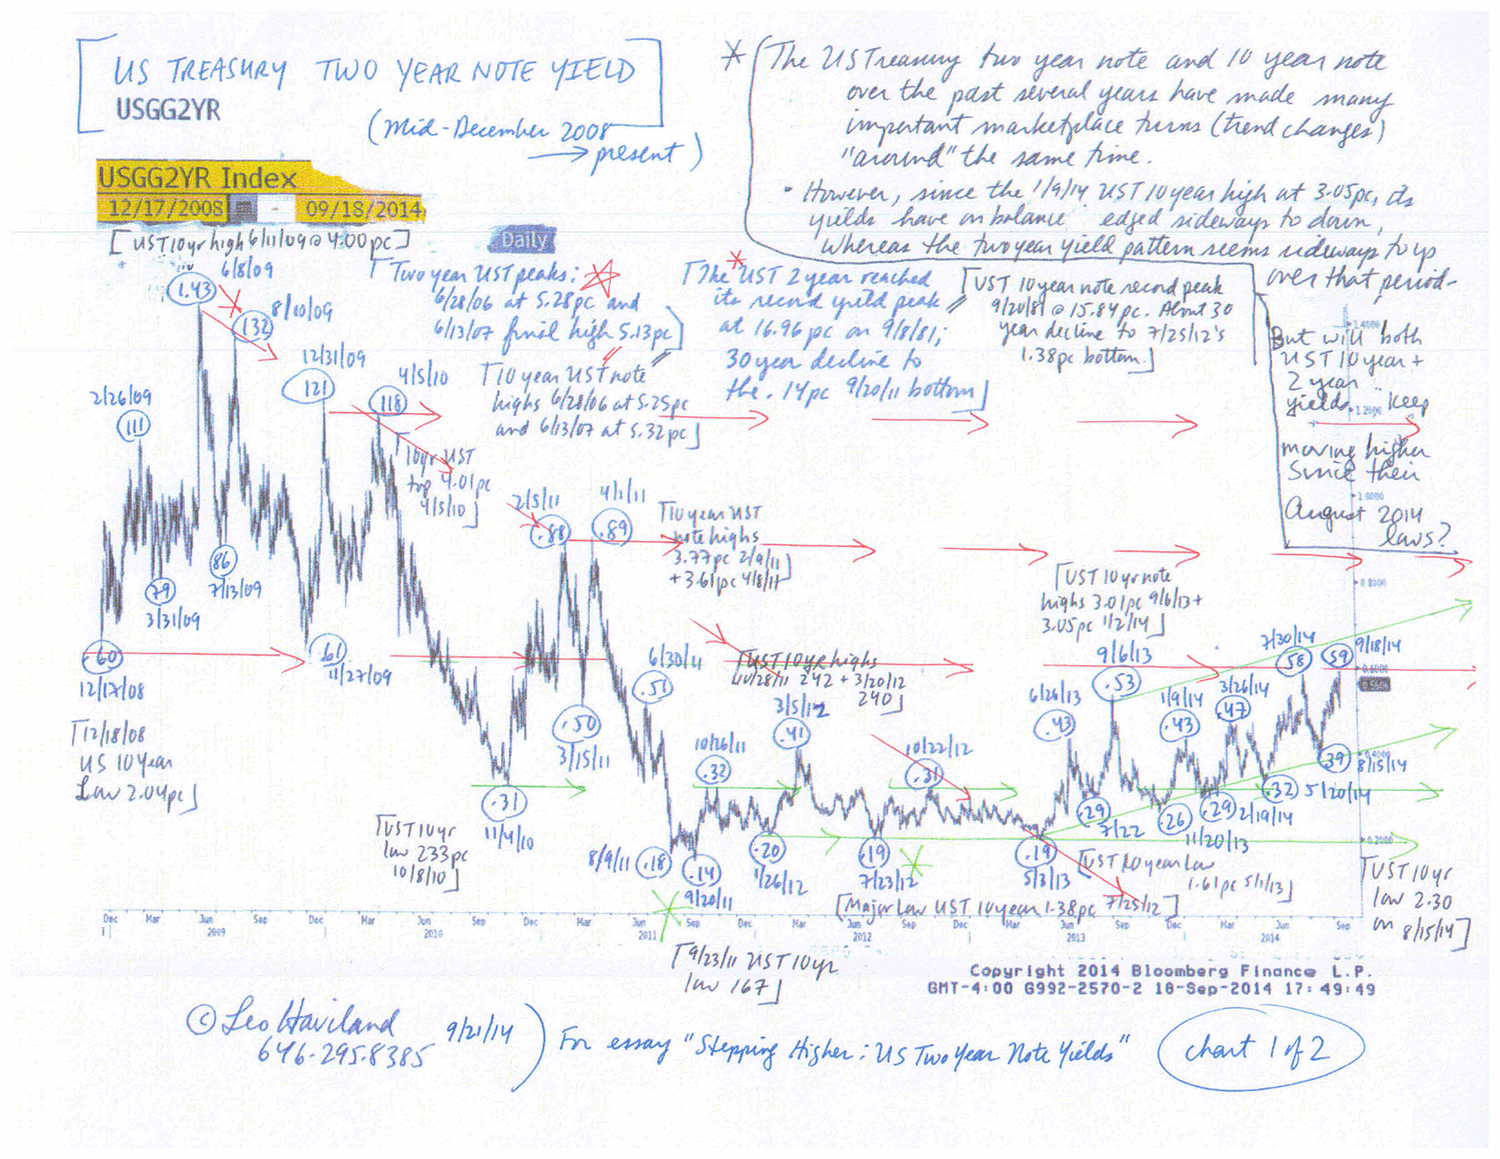 US TREASURY TWO YEAR NOTE YIELD
USGG2YR
(Mid-December 2008
→ present)
* The US Treasury two year note and 10 year note
over the past several years have made many
important marketplace turns (trend changes)
"around" the same time.
• However, since the 1/9/14 UST 10 year high at 3.05pc, its
yields have on balance edged sideways to down,
whereas the two year yield pattern seems sideways to up
over that period.
But will both
UST 10 year +
2 year
yields keep
moving higher
since their
August 2014
lows?
USGG2YR Index
12/17/2008 - 09/18/2014
[UST 10yr high 6/11/09 @ 4.00pc]
Daily
[Two year UST peaks:
6/28/06 at 5.28pc and
6/13/07 final high 5.13pc]
[The UST 2 year reached
its record yield peak
at 16.96 pc on 9/8/81;
30 year decline to
the .14pc 9/20/11 bottom]
[UST 10 year note record peak
9/30/81 @ 15.84pc. About 30
year decline to 7/25/12's
1.38pc bottom.]
[10 year UST note
highs 6/28/06 at 5.25pc
and 6/13/07 at 5.32pc]
6/8/09
1.43
8/10/09
132
12/31/09
121
4/5/10
118
2/26/09
111
[10yr UST
top 4.01pc
4/5/10]
2/5/11
.88
4/1/11
.89
[10 year UST
note highs
3.77pc 2/9/11
+ 3.61pc 4/8/11]
79
3/31/09
86
7/13/09
[UST 10yr note
highs 3.01pc 9/6/13 +
3.05pc 1/2/14]
.60
12/17/08
.61
11/27/09
6/30/11
.51
[UST 10yr highs
10/28/11 242 + 3/20/12
240]
9/6/13
.53
7/30/14
.58
9/18/14
.59
[12/18/08
US 10 year
Low 2.04pc]
.50
3/15/11
3/5/12
.41
10/26/11
.32
10/22/12
.31
6/26/13
.43
1/9/14
.43
3/26/14
.47
.39
8/15/14
.31
11/4/10
.29
7/22
.26
11/20/13
.29
2/19/14
.32
5/20/14
[UST 10yr
low 233pc
10/8/10]
8/9/11
.18
.14
9/20/11
.20
1/26/12
.19
7/23/12
.19
5/3/13
[UST 10 year low
1.61pc 5/1/13]
[Major Low UST 10 year 1.38pc 7/25/12]
[UST 10yr
low 2.30
on 8/15/14]
1.4000
1.2000
1.0000
0.8000
0.6000
0.4000
0.2000
Dec Mar Jun Sep Dec Mar Jun Sep Dec Mar Jun Sep Dec Mar Jun Sep Dec Mar Jun Sep Dec Mar Jun Sep
2009 2010 2011 2012 2013 2014
[9/23/11 UST 10yr
low 167]
Copyright 2014 Bloomberg Finance L.P.
GMT-4:00 G992-2570-2 18-Sep-2014 17:49:49
© Leo Haviland
646-295-8385
9/21/14
For essay "Stepping Higher: US Two Year Note Yields"
chart 1 of 2